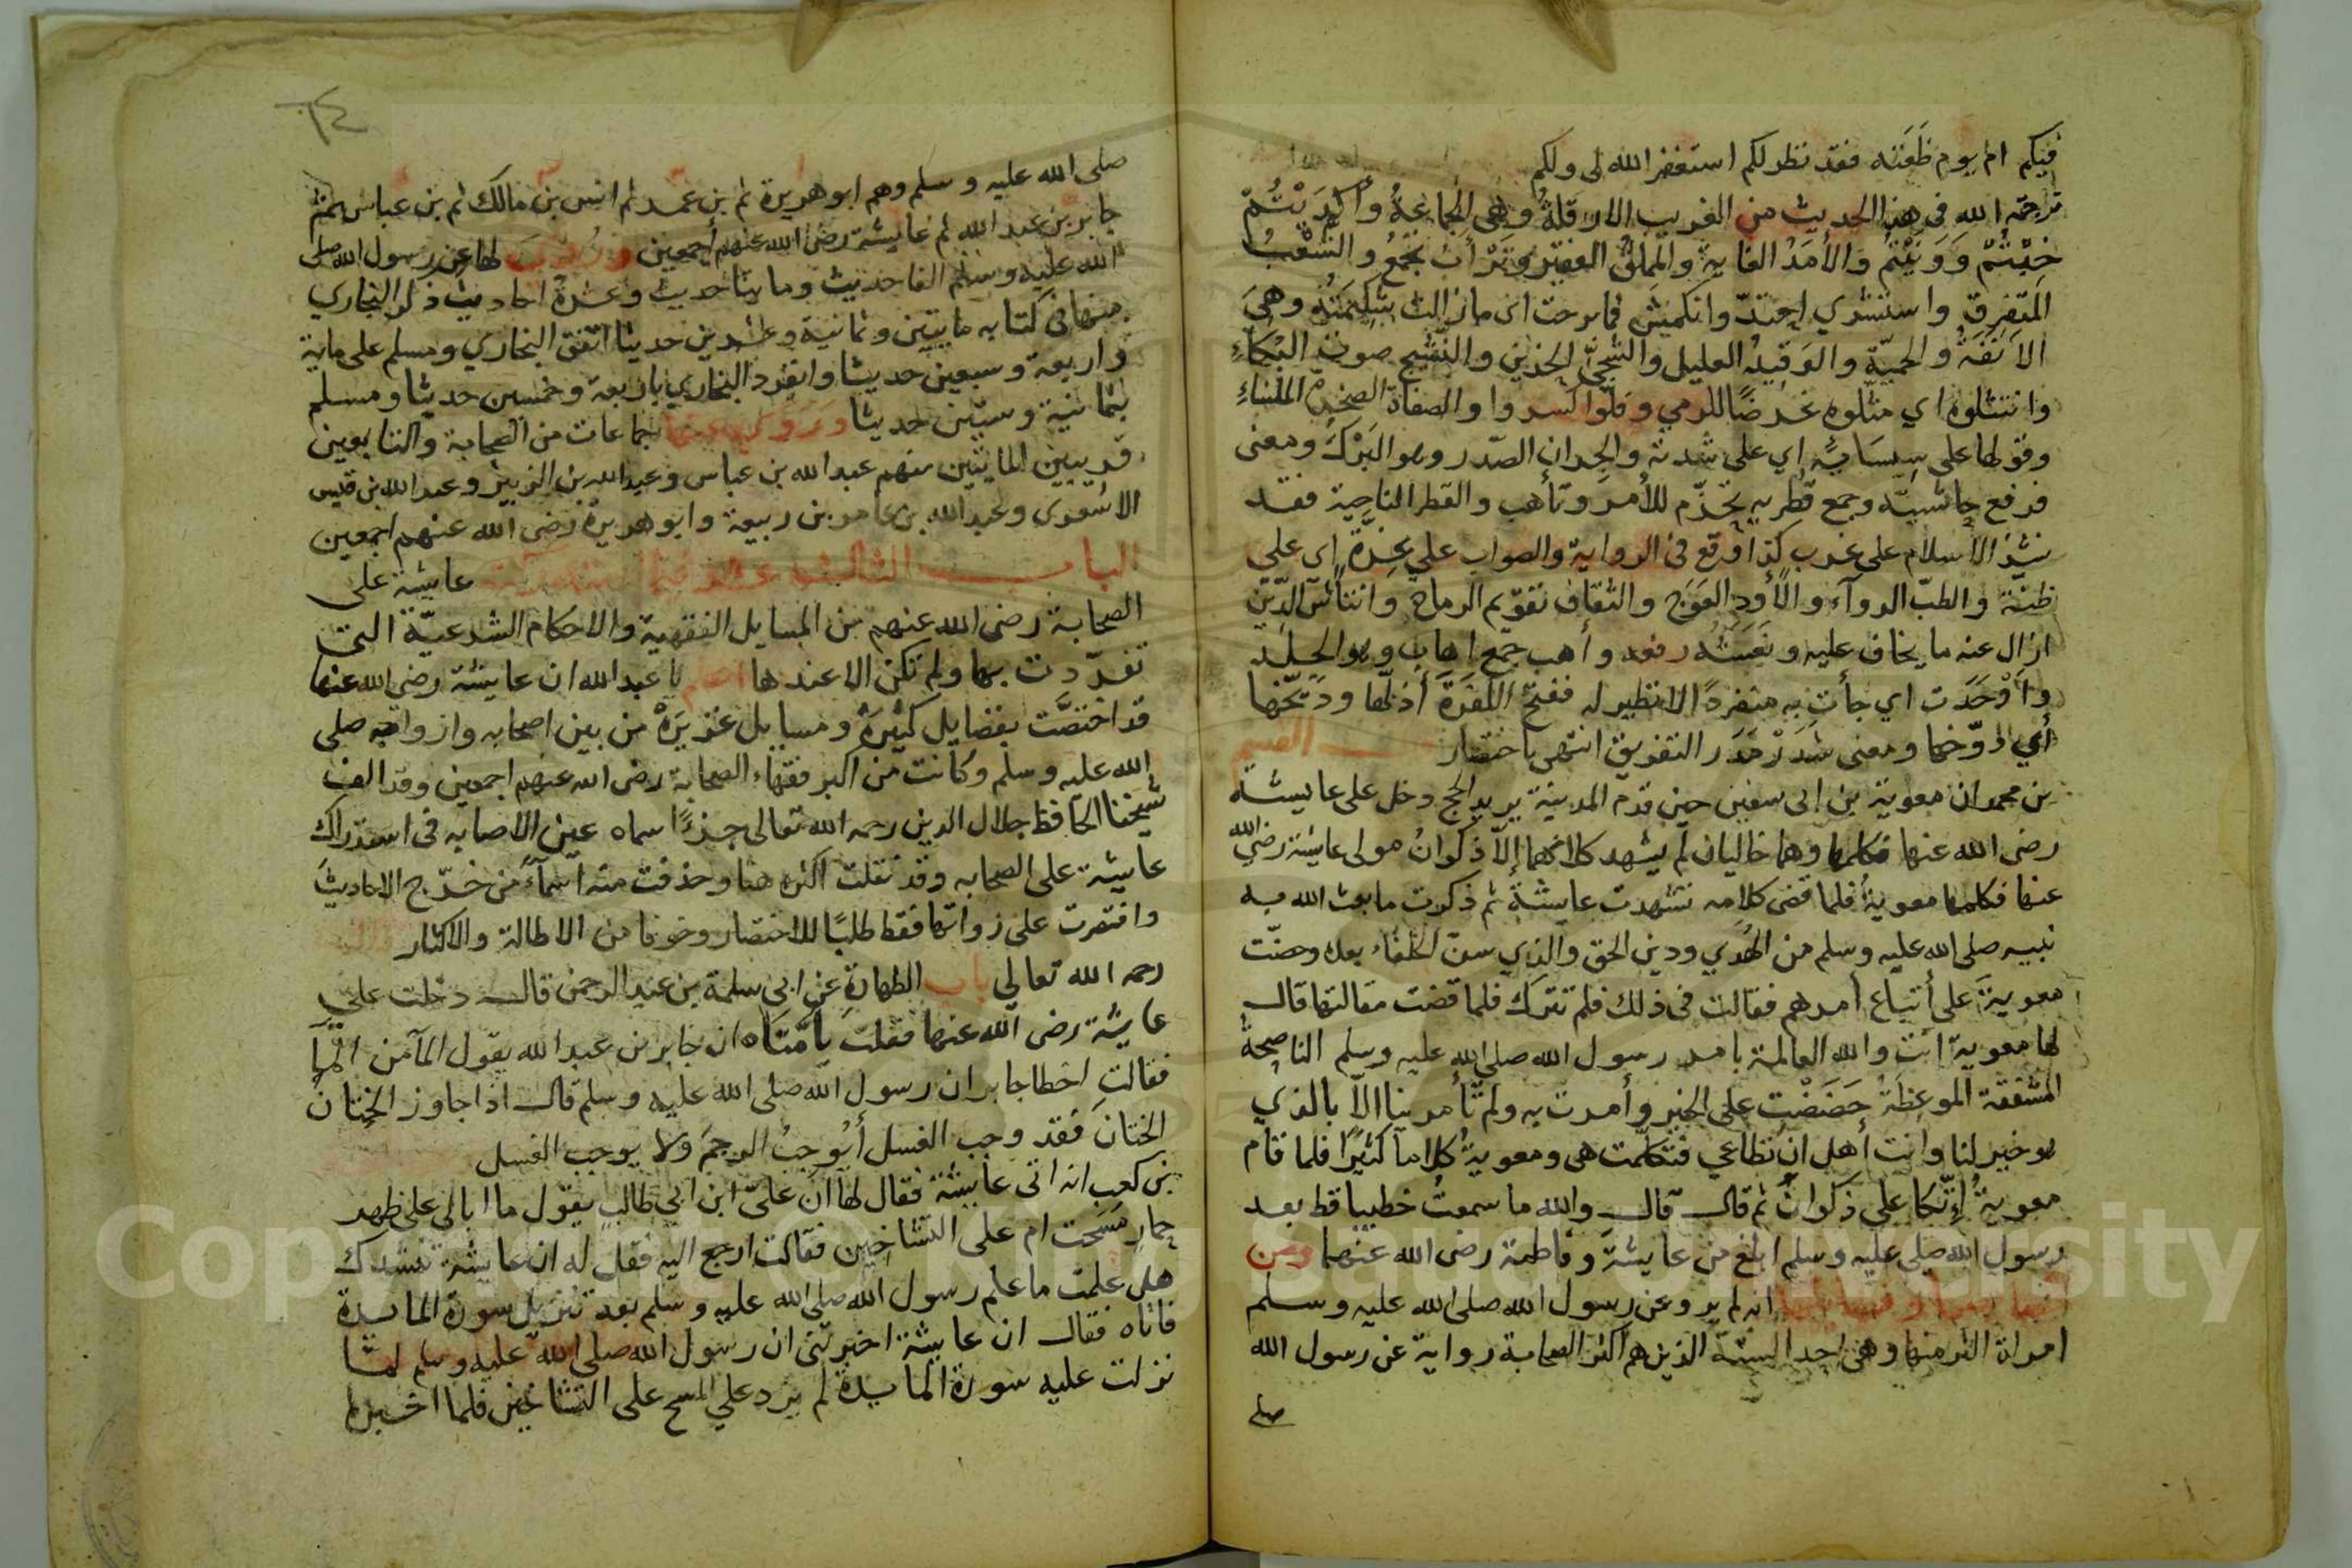 فيكم ام يوم ظعنه فقد نظر لكم استغفر الله لى ولكم
في هذا الحديث من الغريب الازفلةُ وهى الجماعةُ وأكْدَيْتُمْ
خِبْتُمْ وَوَنَيْتُمْ وَالأمَدُ الغاية والمملقُ الفقير وتَرْأَبُ تجمعُ والشَّعْبُ
المتفرق واستشري احتدّ وانكمش فما برحت اى مازالت شكيمَتُه وهىَ
الاَنَفَةُ والحميّة والوقيذ العليل والشجىّ الحزين والنشيج صوت البُكاءِ
وانتثلوه اي مثّلوه غرضًا للرمي وفلّوا كسروا والصفاة الصخرة الملساءِ
وقولها على سِيسَائِهِ اي على شدته والجران الصّدر وهو البَرْكُ ومعنى
فرفع حاشيتَه وجمع قُطريه تحزّم للأمر وتأهب والقطر الناحية فقد
نشز الاسلام على غرب كذا وقع في الرواية والصواب على غرّة اى على
طيّه والطبّ الدوآء والأَودِ العَوَج والثقاف تقويم الرماح وانتاش الدّين
ازال عنه ما يخاف عليه ونَعَشَه رفعه وأهب جمع اهاب وهو الجلد
وأَوْحَدَت اي جأت به منفردًا لانظير له ففنخ الكفَرَةَ أذلّها ودَيّخها
أي دوّخها ومعنى شَذَرْ مَذَر التفريق انتهى باختصار القسم
بن محمد ان معوية بن ابى سفين حين قدم المدينة يريد الحج دخل على عايشة
رضى الله عنها فكلمها وهما خاليان لم يشهد كلامهما إلاّ ذكوانُ مولى عايشة رضي الله
عنها فكلمها معويةُ فلما قضى كلامه تشهدت عايشةُ ثم ذكرت ما بعث الله به
نبيه صلى الله عليه وسلم من الهُدَي ودين الحق والذي سنّ الخلفاء بعده وحضّت
معويةَ على أتباع أمرهم فقالت في ذلك فلم تترك فلما قضت مقالتها قال
لها معوية انت والله العالمة بامر رسول الله صلى الله عليه وسلم الناصحةُ
المشفقة الموعظة حَضَضْتِ على الخير وأمرت به ولم تأمرينا الاّ بالذي
هو خير لنا وانت أهل ان تطاعي فتكلّمت هى ومعويةُ كلاما كثيرًا فلما قام
معويةُ إتّكا على ذكوانَ ثم قال قال والله ما سمعتُ خطيبا قط بعد
رسول الله صلى عليه وسلم ابلغ من عايشة وفاطمة رضى الله عنهما ومن
انه لم يرو عن رسول الله صلى الله عليه وسلم
امراة اكثر منها وهى احد الستة الذين هم اكثر الصحابة رواية عن رسول الله
صلى
صلى الله عليه وسلم وهم ابو هريرة ثم بن عمر ثم انس بن مالك ثم بن عباس ثم
جابر بن عبد الله ثم عايشة رضى الله عنهم اجمعين لها عن رسول الله صلى
الله عليه وسلم الفا حديث ومايتا حديث وعشرة احاديث ذكر البخاري
منها في كتابه مايتين وثمانية وعشرين حديثا اتفق البخاري ومسلم على ماية
واربعة وسبعين حديثا وانفرد البخاري باربعة وخمسين حديثا ومسلم
بثمانية وستين حديثا وروى عنها جماعات من الصحابة والتابعين
قريبين المايتين منهم عبد الله بن عباس وعبد الله بن الزبير وعبد الله بن قيس
الاشعرى وعبد الله بن عامر بن ربيعة وابو هريرة رضى الله عنهم اجمعين
الباب الثالث عشر فيما استدركته عايشة على
الصحابة رضى الله عنهم من المسايل الفقهية والاحكام الشرعيّة التى
تفرّدت بها ولم تكن الا عندها اعلم يا عبد الله ان عايشة رضى الله عنها
قد اختصَّت بفضايل كثيرةٍ ومسايل غزيرةْ من بين اصحابه وازواجه صلى
الله عليه وسلم وكانت من اكبر فقهاء الصحابة رضى الله عنهم اجمعين وقد الف
شيخنا الحافظ جلال الدين رحمه الله تعالى جزءًا سماه عين الاصابه فى استدراك
عايشة على الصحابه وقد نقلت اكثره هنا وحذفت منه اسمآءَ من خرّج الاحاديثَ
واقتصرت على زواتها فقط طلبًا للاختصار وخوفا من الاطالة والاكثار
رحمه الله تعالي باب الطهارة عن ابى سلمة بن عبد الرحمن قال دخلت على
عايشة رضى الله عنها فقلت يا أمّتاه ان جابر بن عبد الله يقول المآ من المآ
فقالت اخطا جابر ان رسول الله صلى الله عليه وسلم قال اذا جاوز الختان
الختانَ فقد وجب الغسل أيُوجبُ الرجمَ ولا يوجب الغسل
بن كعب انه اتى عايشة فقال لها ان علىّ ابن ابى طالب يقول ما ابالى على ظهر
حمار مسحت ام على التساخين فقالت ارجع اليه فقل له ان عايشة تنشدك
هل علمت ما علم رسول الله صلى الله عليه وسلم بعد تنزيل سورة المايدة
فاتاه فقال ان عايشة اخبرتنى ان رسول الله صلى الله عليه وسلم لمّا
نزلت عليه سورة المايدة لم يزد على المسح على التساخين فلما اخبره
Copyright © King Saud University